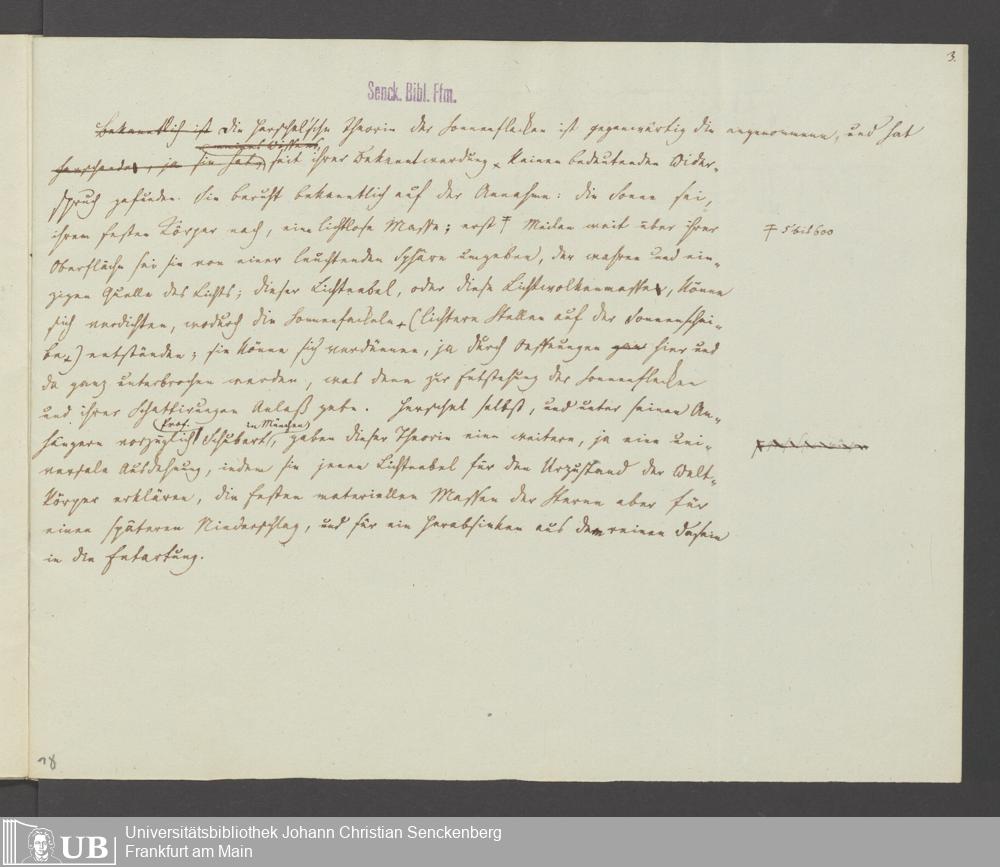 3.
Senck. Bibl. Ffm.
Bekanntlich ist Die Herschel'sche Theorie der Sonnenflecken ist gegenwärtig die angenommene, und hat
herrschende, ja sie hat, seit ihrer Bekanntwerdung keinen bedeutenden Wider-
spruch gefunden. Sie beruht bekanntlich auf der Annahme: die Sonne sei,
ihrem festen Körper nach, eine lichtlose Masse; erst Meilen weit über ihrer
5 bis 600
Oberfläche sei sie von einer leuchtenden Sphäre umgeben, der wahren und ein-
zigen Quelle des Lichts; dieser Lichtnebel, oder diese Lichtwolkenmasse, könne
sich verdichten, wodurch die Sonnenfackeln (lichtere Stellen auf der Sonnenschei-
be) entständen; sie könne sich verdünnen, ja durch Oeffnungen hier und
da ganz unterbrochen werden, was denn zur Entstehung der Sonnenflecken
und ihrer Schattirungen Anlaß gebe. Herschel selbst, und unter seinen An-
Prof. zu München
hängern vorzüglich Schubert, geben dieser Theorie eine weitere, ja eine uni-
versale Ausdehnung, indem sie jenen Lichtnebel für den Urzustand der Welt-
körper erklären, die festen materiellen Massen der Sterne aber für
einen späteren Niederschlag, und für ein Herabsinken aus dem reinen Dasein
in die Entartung.
18
UB
Universitätsbibliothek Johann Christian Senckenberg
Frankfurt am Main